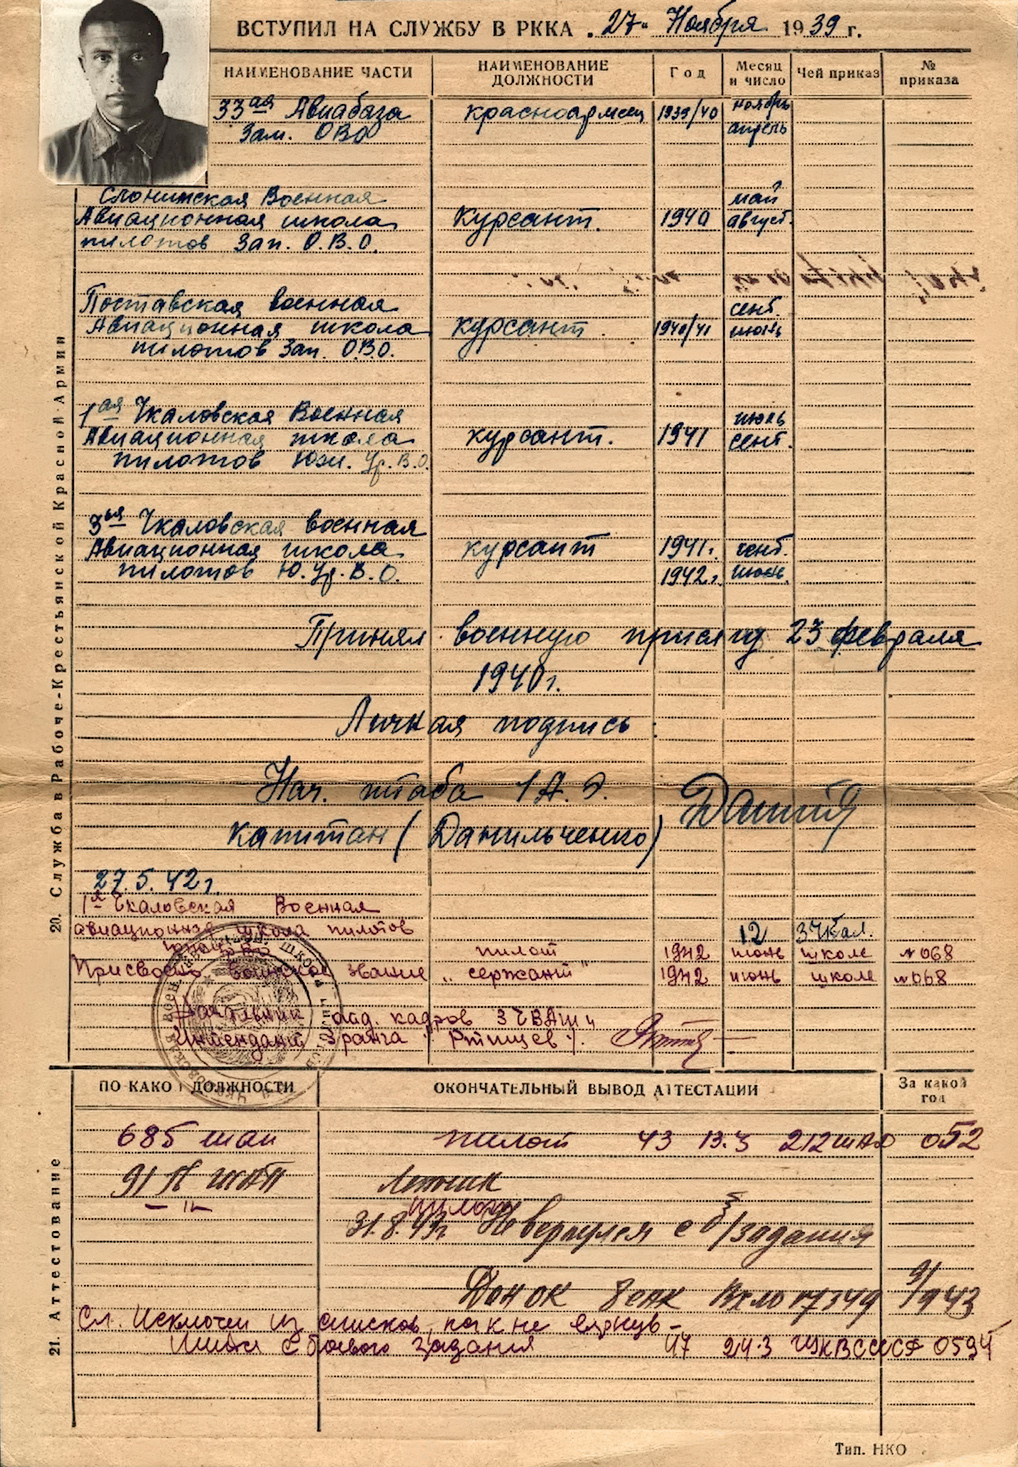 ВСТУПИЛ НА СЛУЖБУ В РККА „27“ Ноября 1939 г.
НАИМЕНОВАНИЕ ЧАСТИ
НАИМЕНОВАНИЕ ДОЛЖНОСТИ
Год
Месяц и число
Чей приказ
№ приказа
33ая Авиабаза красноармеец 1939/40 ноябрь
Зап. ОВО апрель
Слонимская Военная май
Авиационная школа курсант. 1940 август.
пилотов Зап. О.В.О.
Поставская военная сент.
Авиационная школа курсант 1940/41 июнь
пилотов Зап. О.В.О.
1ая Чкаловская Военная июль
Авиационная школа курсант. 1941 сент.
пилотов Юж. Ур. В.О.
3ья Чкаловская военная
Авиационная школа курсант 1941г. сент.
пилотов Ю. Ур. В. О. 1942г. июнь.
Принял военную присягу 23 февраля
1940г.
Личная подпись:
Нач. штаба 1 А. Э.
капитан (Данильченко)
27.5.42г.
1я Чкаловская Военная
авиационная школа пилотов 12 3 Чкал.
пилот 1942 июнь школе №068
Присвоено воинское звание „сержант“ 1942 июнь школе №068
отд. кадров 3 ЧВАШП
Интендант 3 ранга /Ртищев/.
20. Служба в Рабоче-Крестьянской Красной Армии
ПО КАКОЙ ДОЛЖНОСТИ
ОКОНЧАТЕЛЬНЫЙ ВЫВОД АТТЕСТАЦИИ
За какой год
685 шап пилот 43 13.3 212 шад 052
91 Летчик
пилот
31.8.43г. Не вернулся с б/задания
Донок Вх 17349 91/943
Сл. Исключен из списков, как не вернув-
шийся с боевого задания 47 24.3 ГУКВССССР 0594
21. Аттестование
Тип. НКО